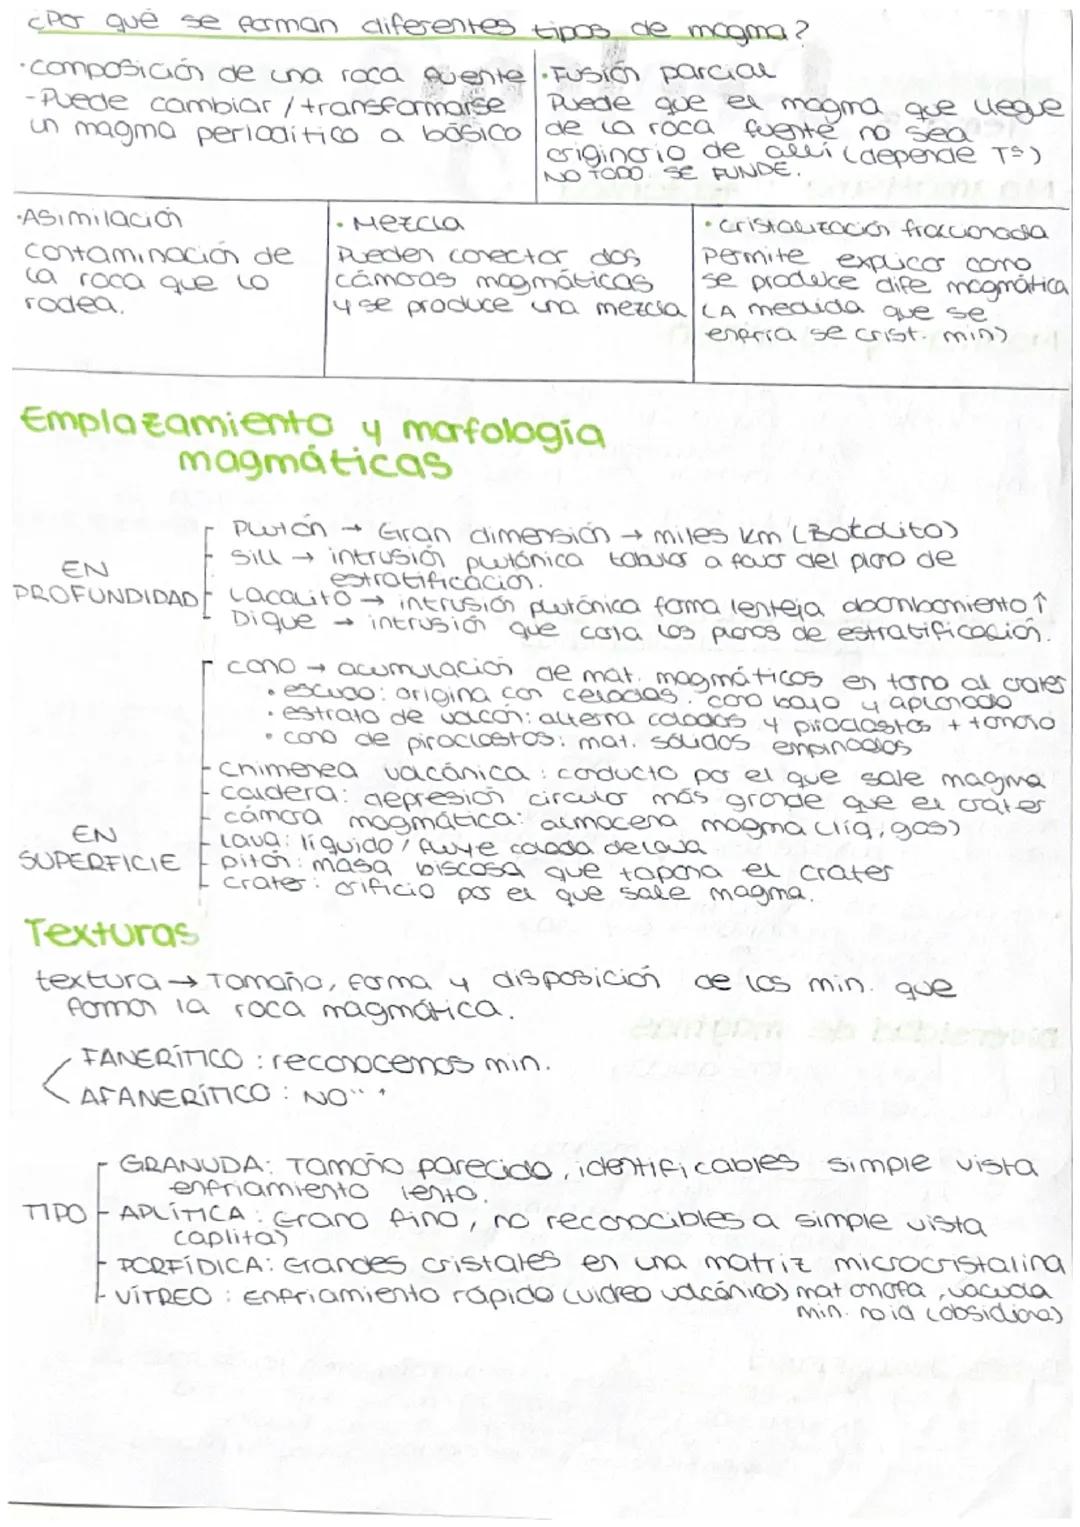 ¿Por qué se forman diferentes tipos de magma?
·composición de una roca fuente
-Puede cambiar / transformarse
un magma peridotítico a básico
·Fusión parcial
Puede que el magma que llegue
de la roca fuente no sea
originario de allí (depende Tª)
NO TODO SE FUNDE.
·Asimilación
contaminación de
la roca que lo
rodea.
·Mezcla
Pueden conectar dos
cámaras magmáticas
y se produce una mezcla
·cristalización fraccionada
Permite explicar como
se produce dife magmática
(A medida que se
enfría se crist. min)
Emplazamiento y morfología
magmáticas
EN
PROFUNDIDAD
Plutón → Gran dimensión → miles km (Batolito)
Sill → intrusión plutónica tabular a favor del plano de
estratificación.
Lacolito → intrusión plutónica forma lenteja abombamiento ↑
Dique → intrusión que corta los planos de estratificación.
EN
SUPERFICIE
cono → acumulación de mat. magmáticos en torno al cráter
• escudo: origina con coladas. cono bajo y aplanado
• estrato de volcán: alterna coladas y piroclastos + tamaño
• cono de piroclastos: mat. sólidos empinados
Chimenea volcánica: conducto por el que sale magma
caldera: depresión circular más grande que el cráter
cámara magmática: almacena magma (líq, gas)
Lava: líquido / fluye colada de lava
Pitón: masa viscosa que tapona el cráter
Cráter: orificio por el que sale magma.
Texturas
textura → Tamaño, forma y disposición de los min. que
forman la roca magmática.
FANERÍTICO : reconocemos min.
AFANERÍTICO : NO " "
TIPO
GRANUDA: Tamaño parecido, identificables simple vista
enfriamiento lento.
APLÍTICA: Grano fino, no reconocibles a simple vista
(aplita)
PORFÍDICA: Grandes cristales en una matriz microcristalina
VÍTREO : Enfriamiento rápido (vidreo volcánico) mat amorfa, vacuola
min. no id (obsidiana)